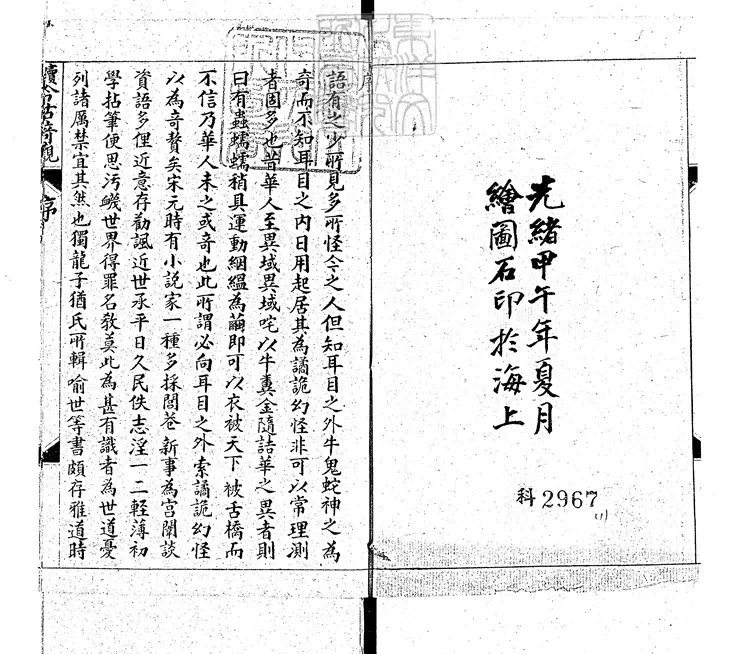 光緒甲午年夏月
繪圖石印於海上
科2967
序
語有之少所見多所怪今之人但知耳目之外牛鬼蛇神之為
奇而不知耳目之內日用起居其為譎詭幻怪非可以常理測
者固多也昔華人至異域異域咤以牛糞金隨詰華之異者則
曰有蟲蠕蠕稍具運動絪縕為繭即可以衣被天下彼舌橋而
不信乃華人未之或奇也此所謂必向耳目之外索譎詭幻怪
以為奇贅矣宋元時有小說家一種多採閭巷新事為宮闈談
資語多俚近意存勸諷近世承平日久民佚志淫一二輕薄初
學拈筆便思污衊世界得罪名教莫此為甚有識者為世道憂
列諸厲禁宜其然也獨龍子猶氏所輯喻世等書頗存雅道時
續今古奇觀
序